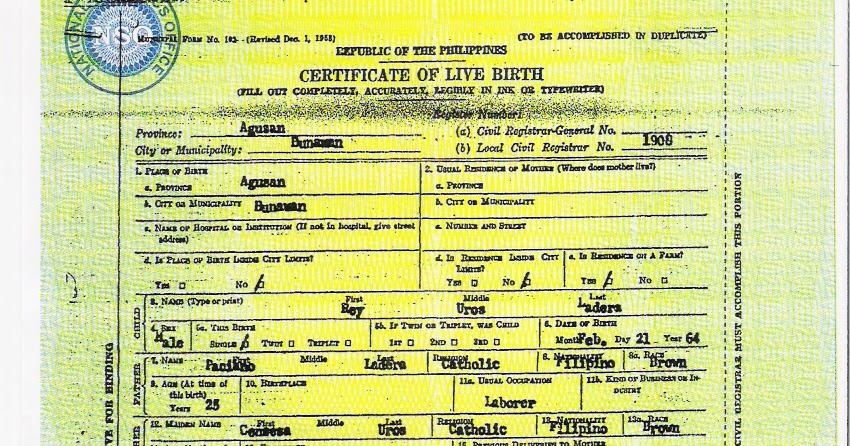 NATIONAL STATISTICS OFFICE
NSO
Municipal Form No. 102- (Revised Dec. 1, 1958) (TO BE ACCOMPLISHED IN DUPLICATE)
REPUBLIC OF THE PHILIPPINES
CERTIFICATE OF LIVE BIRTH
(FILL OUT COMPLETELY, ACCURATELY, LEGIBLY IN INK OR TYPEWRITER)
Register Number:
Province: Agusan (a) Civil Registrar-General No.
City or Municipality: Bunawan (b) Local Civil Registrar No. 1908
1. PLACE OF BIRTH 2. USUAL RESIDENCE OF MOTHER (Where does mother live?)
a. PROVINCE Agusan a. PROVINCE
b. CITY OR MUNICIPALITY Bunawan b. CITY OR MUNICIPALITY
c. NAME OF HOSPITAL OR INSTITUTION (If not in hospital, give street address) c. NUMBER AND STREET
d. IS PLACE OF BIRTH INSIDE CITY LIMITS? d. IS RESIDENCE INSIDE CITY LIMITS? e. IS RESIDENCE ON A FARM?
YES NO YES NO YES NO
CHILD
3. NAME (Type or print) First Rey Middle Uros Last Ladera
4. SEX Male 5a. THIS BIRTH SINGLE TWIN TRIPLET 5b. IF TWIN OR TRIPLET, WAS CHILD 1ST 2ND 3RD 6. DATE OF BIRTH Month Feb. Day 21 Year 64
FATHER
7. NAME First Paciano Middle Ladera RELIGION Catholic 8. NATIONALITY Filipino 8a. RACE Brown
9. AGE (At time of this birth) Years 25 10. BIRTHPLACE 11a. USUAL OCCUPATION Laborer 11b. KIND OF BUSINESS OR INDUSTRY
12. MAIDEN NAME First Middle Uros RELIGION Catholic 13. NATIONALITY Filipino 13a. RACE Brown
PREVIOUS DELIVERIES TO MOTHER
VE FOR BINDING
CIVIL REGISTRAR MUST ACCOMPLISH THIS PORTION